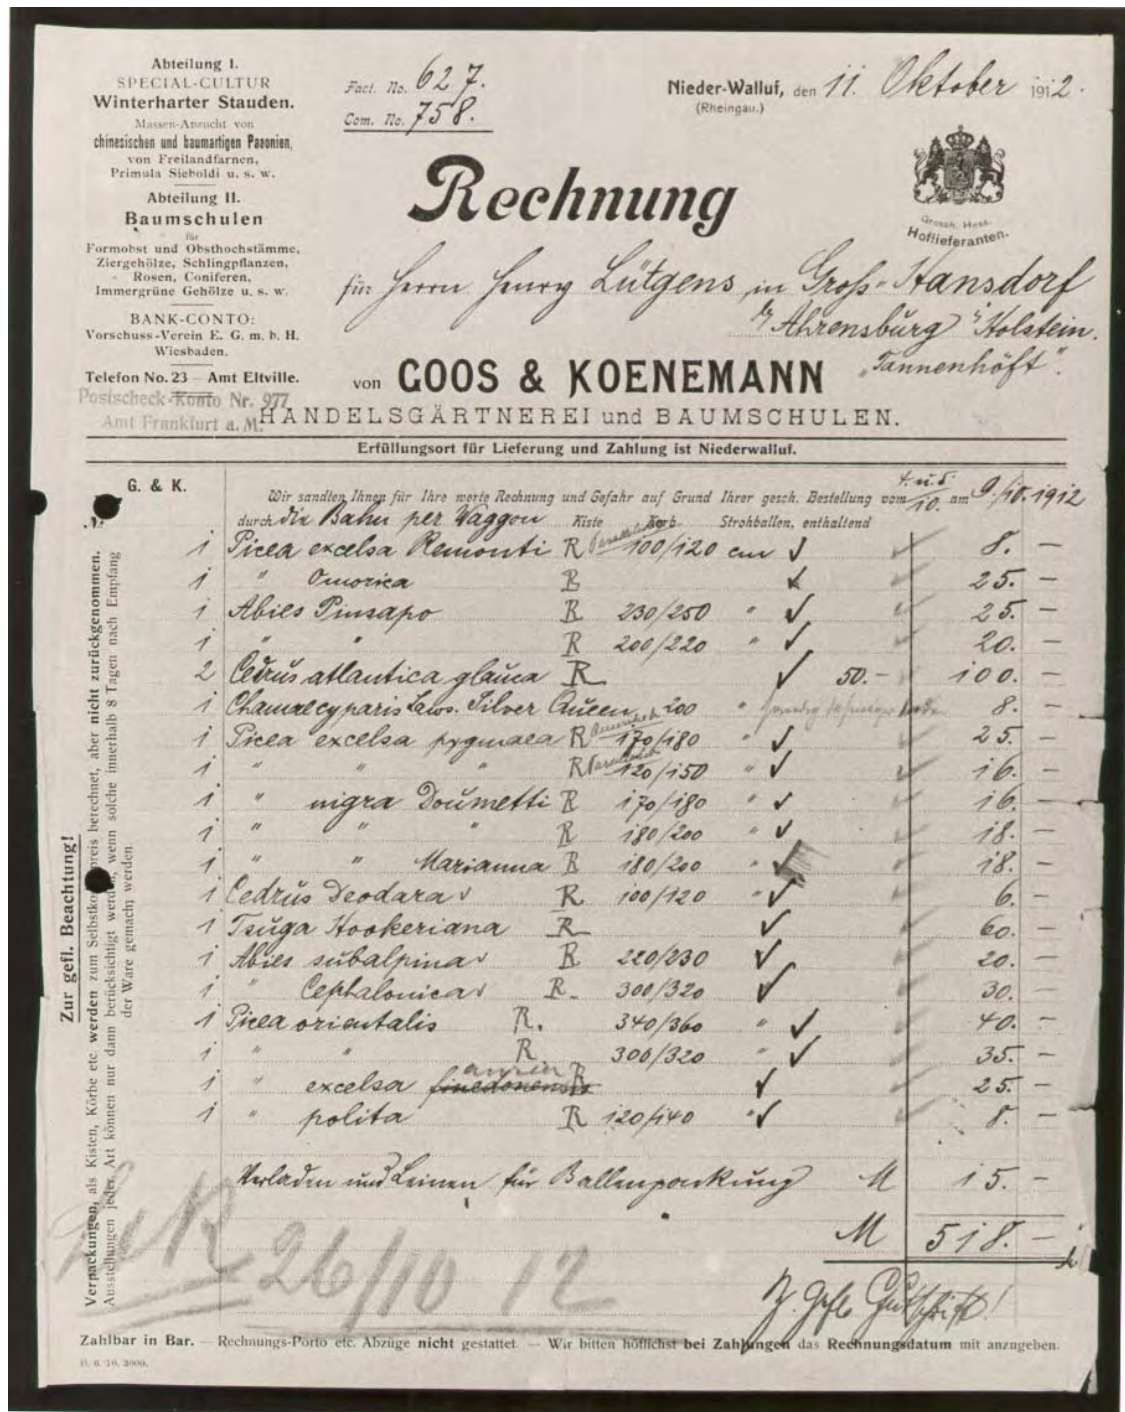 Abteilung I.
SPECIAL-CULTUR
Winterharter Stauden.
Massen-Anzucht von
chinesischen und baumartigen Paeonien,
von Freilandfarnen,
Primula Sieboldi u. s. w.
Abteilung II.
Baumschulen
für
Formobst und Obsthochstämme,
Ziergehölze, Schlingpflanzen,
Rosen, Coniferen,
Immergrüne Gehölze u. s. w.
BANK-CONTO:
Vorschuss-Verein E. G. m. b. H.
Wiesbaden.
Telefon No. 23 — Amt Eltville.
Postscheck-Konto Nr. 977
Amt Frankfurt a. M.
Fact. No. 627.
Com. No. 758.
Nieder-Walluf, den 11. Oktober 1912.
(Rheingau.)
Grossh. Hess.
Hoflieferanten.
Rechnung
für Herrn Henry Lütgens in Groß-Hansdorf
b/ Ahrensburg i/ Holstein.
„Tannenhöft".
von GOOS & KOENEMANN
HANDELSGÄRTNEREI und BAUMSCHULEN.
Erfüllungsort für Lieferung und Zahlung ist Niederwalluf.
G. & K.
No.
Wir sandten Ihnen für Ihre werte Rechnung und Gefahr auf Grund Ihrer gesch. Bestellung vom 4. u. 5./10. am 9/10. 1912
durch die Bahn per Waggon Kiste Korb Strohballen, enthaltend
1 Picea excelsa Remonti R 100/120 cm ✓ 8. —
1 " Omorica R 25. —
1 Abies Pinsapo R 230/250 " ✓ 25. —
1 " " R 200/220 " ✓ 20. —
2 Cedrus atlantica glauca R ✓ 50.- 100. —
1 Chamaecyparis Laws. Silver Queen 200 " 8. —
1 Picea excelsa pygmaea R 170/180 " ✓ 25. —
1 " " " R 120/150 " ✓ 16. —
1 " nigra Doumetti R 170/180 " ✓ 16. —
1 " " " R 180/200 " ✓ 18. —
1 " " Marianna R 180/200 " ✓ 18. —
1 Cedrus Deodara R 100/120 " ✓ 6. —
1 Tsuga Hookeriana R ✓ 60. —
1 Abies subalpina R 220/230 ✓ 20. —
1 " Cephalonica R. 300/320 ✓ 30. —
1 Picea orientalis R. 340/360 " ✓ 40. —
1 " " R. 300/320 " ✓ 35. —
1 " excelsa finedonensis R ✓ 25. —
1 " polita R 120/140 " ✓ 8. —
Verladen und Leinen für Ballenpackung M 15. —
M 518. —
26/10 12
Zur gefl. Beachtung!
Verpackungen, als Kisten, Körbe etc. werden zum Selbstkostenpreis berechnet, aber nicht zurückgenommen.
Ausstellungen jeder Art können nur dann berücksichtigt werden, wenn solche innerhalb 8 Tagen nach Empfang
der Ware gemacht werden.
Zahlbar in Bar. — Rechnungs-Porto etc. Abzüge nicht gestattet. — Wir bitten höflichst bei Zahlungen das Rechnungsdatum mit anzugeben.